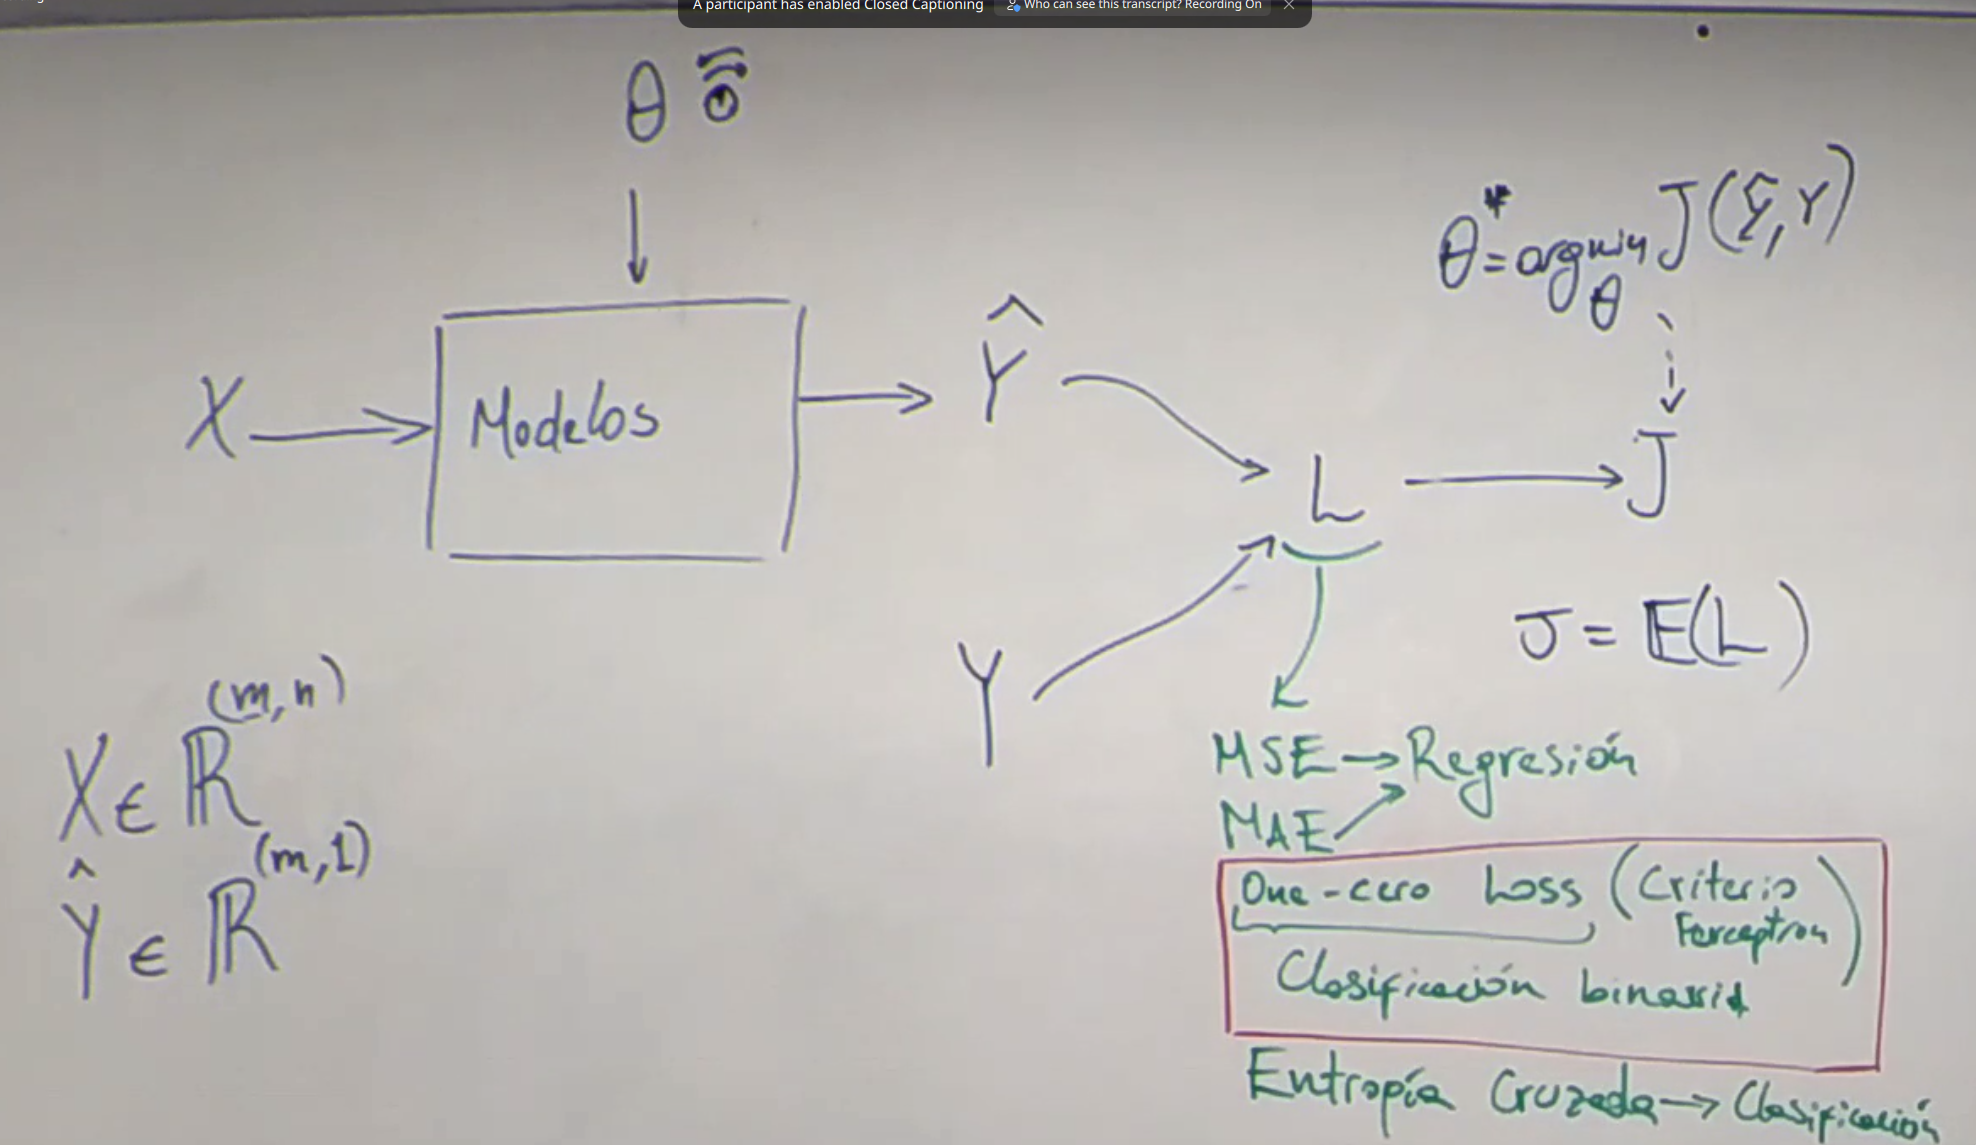 A participant has enabled Closed Captioning Who can see this transcript? Recording On
θ
θ* = argmin J(Ŷ, Y)
θ
X
Modelos
Ŷ
L
J
Y
J = 𝔼(L)
X ∈ ℝ^(m,n)
Ŷ ∈ ℝ^(m,1)
MSE → Regresión
MAE
One-cero Loss (Criterio
Perceptron)
Clasificación binaria
Entropía Cruzada → Clasificación